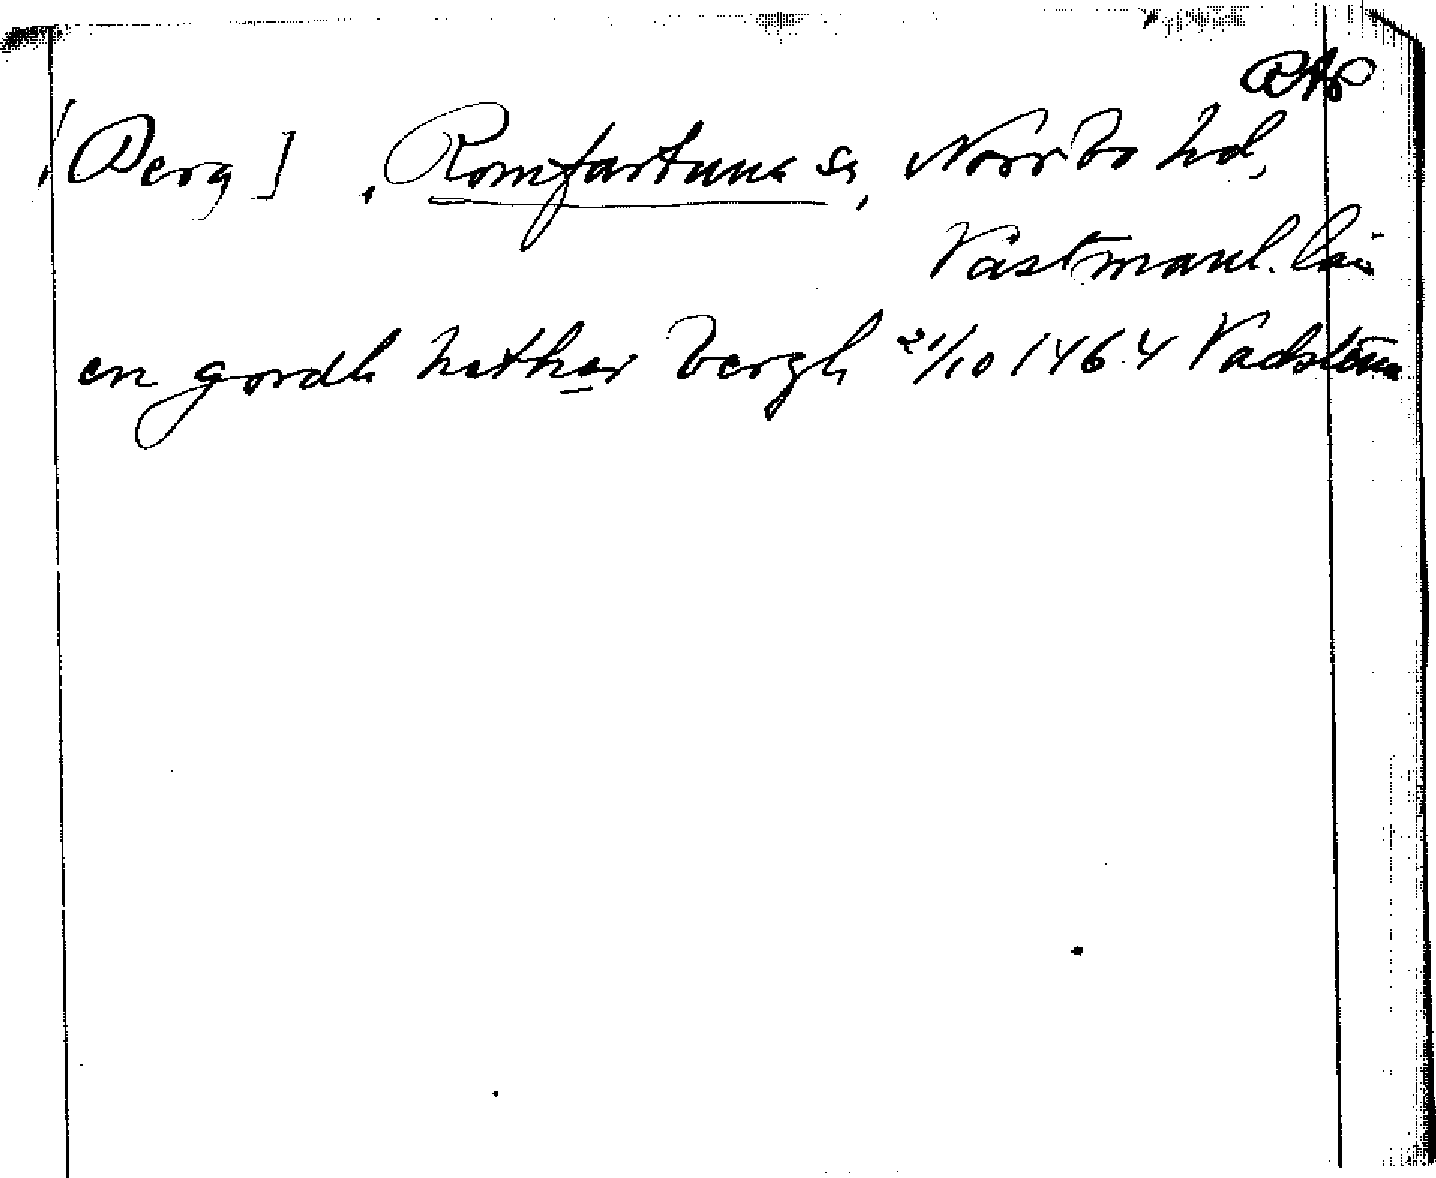 RAp
[Berg], Romfartuna sn, Norrbo hd,
Västmanl. län
en gordh hethær bergh 21/10 1464 Vadstena